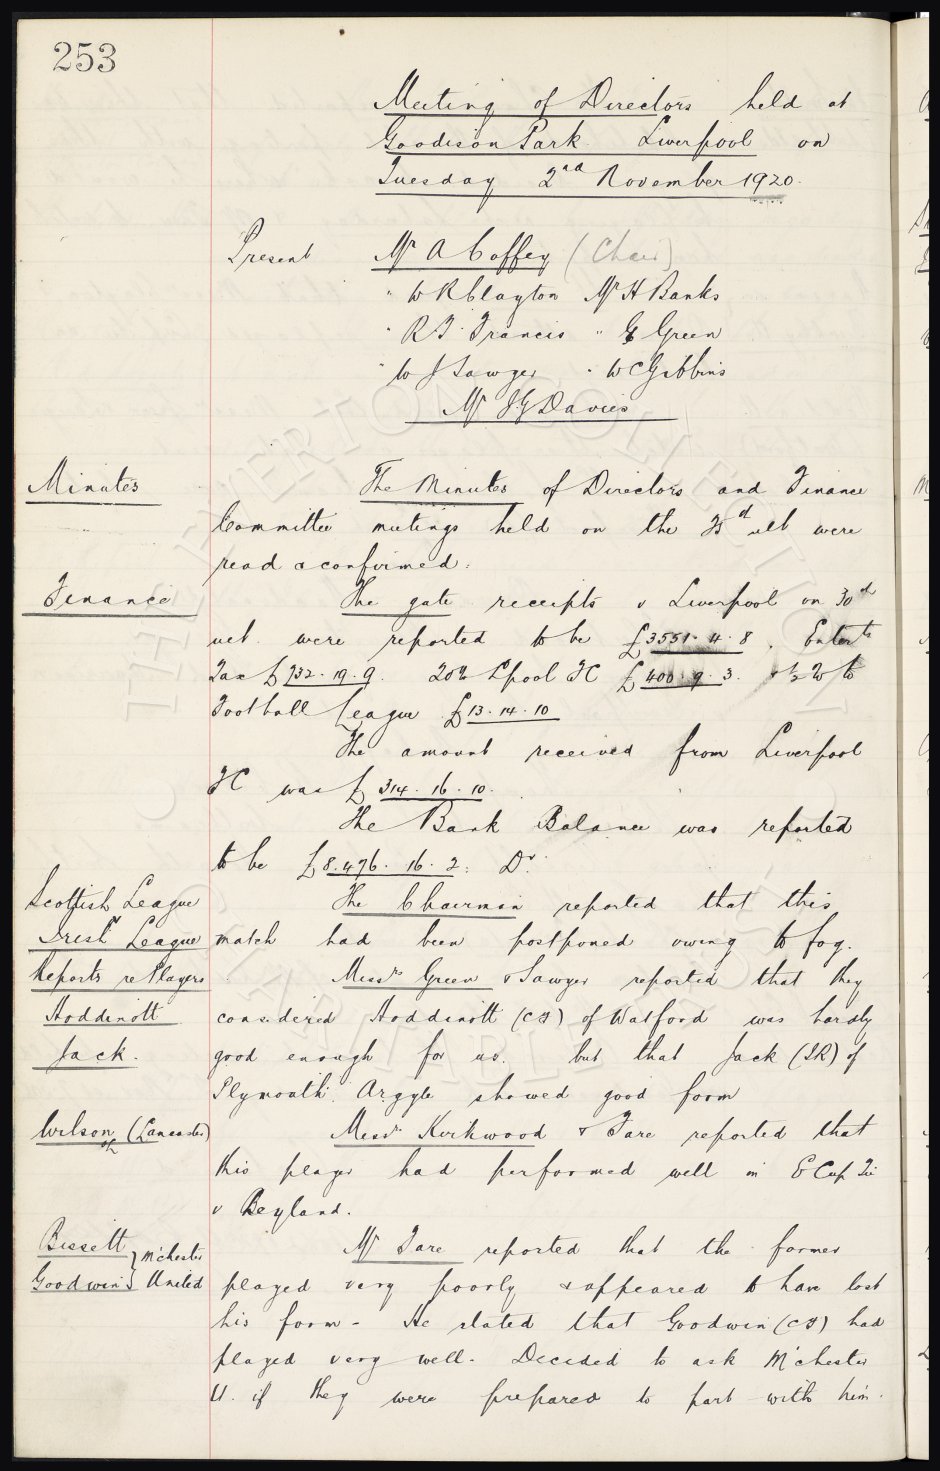 253
Meeting of Directors held at
Goodison Park Liverpool on
Tuesday 2nd November 1920.
Present Mr A Coffey (Chair)
" W R Clayton Mr H Banks
" R T Francis " E Green
" W J Sawyer " W C Gibbins
Mr J G Davies
Minutes The Minutes of Directors and Finance
Committee meetings held on the ult were
read & confirmed.
Finance The gate receipts v Liverpool on 30th
ult. were reported to be £3551. 4. 8. Entertts
Tax £732. 19. 9. 20% Lpool FC £400. 9. 3. & ½% to
Football League £13. 14. 10
The amount received from Liverpool
FC was £314. 16. 10.
The Bank Balance was reported
to be £8.476. 16. 2: Dr.
Scottish League The Chairman reported that this
Irish League match had been postponed owing to fog.
Reports re Players Messrs Green & Sawyer reported that they
Hoddinott considered Hoddinott (CF) of Watford was hardly
Jack. good enough for us. but that Jack (IR) of
Plymouth Argyle showed good form
Wilson (Lancaster) Messrs Kirkwood & Fare reported that
this player had performed well in E Cup Tie
v Leyland.
Bissett } M'chester Mr Fare reported that the former
Goodwin } United played very poorly & appeared to have lost
his form - He stated that Goodwin (CF) had
played very well. Decided to ask M'chester
U. if they were prepared to part with him.
THE EVERTON COLLECTION
CHARITABLE